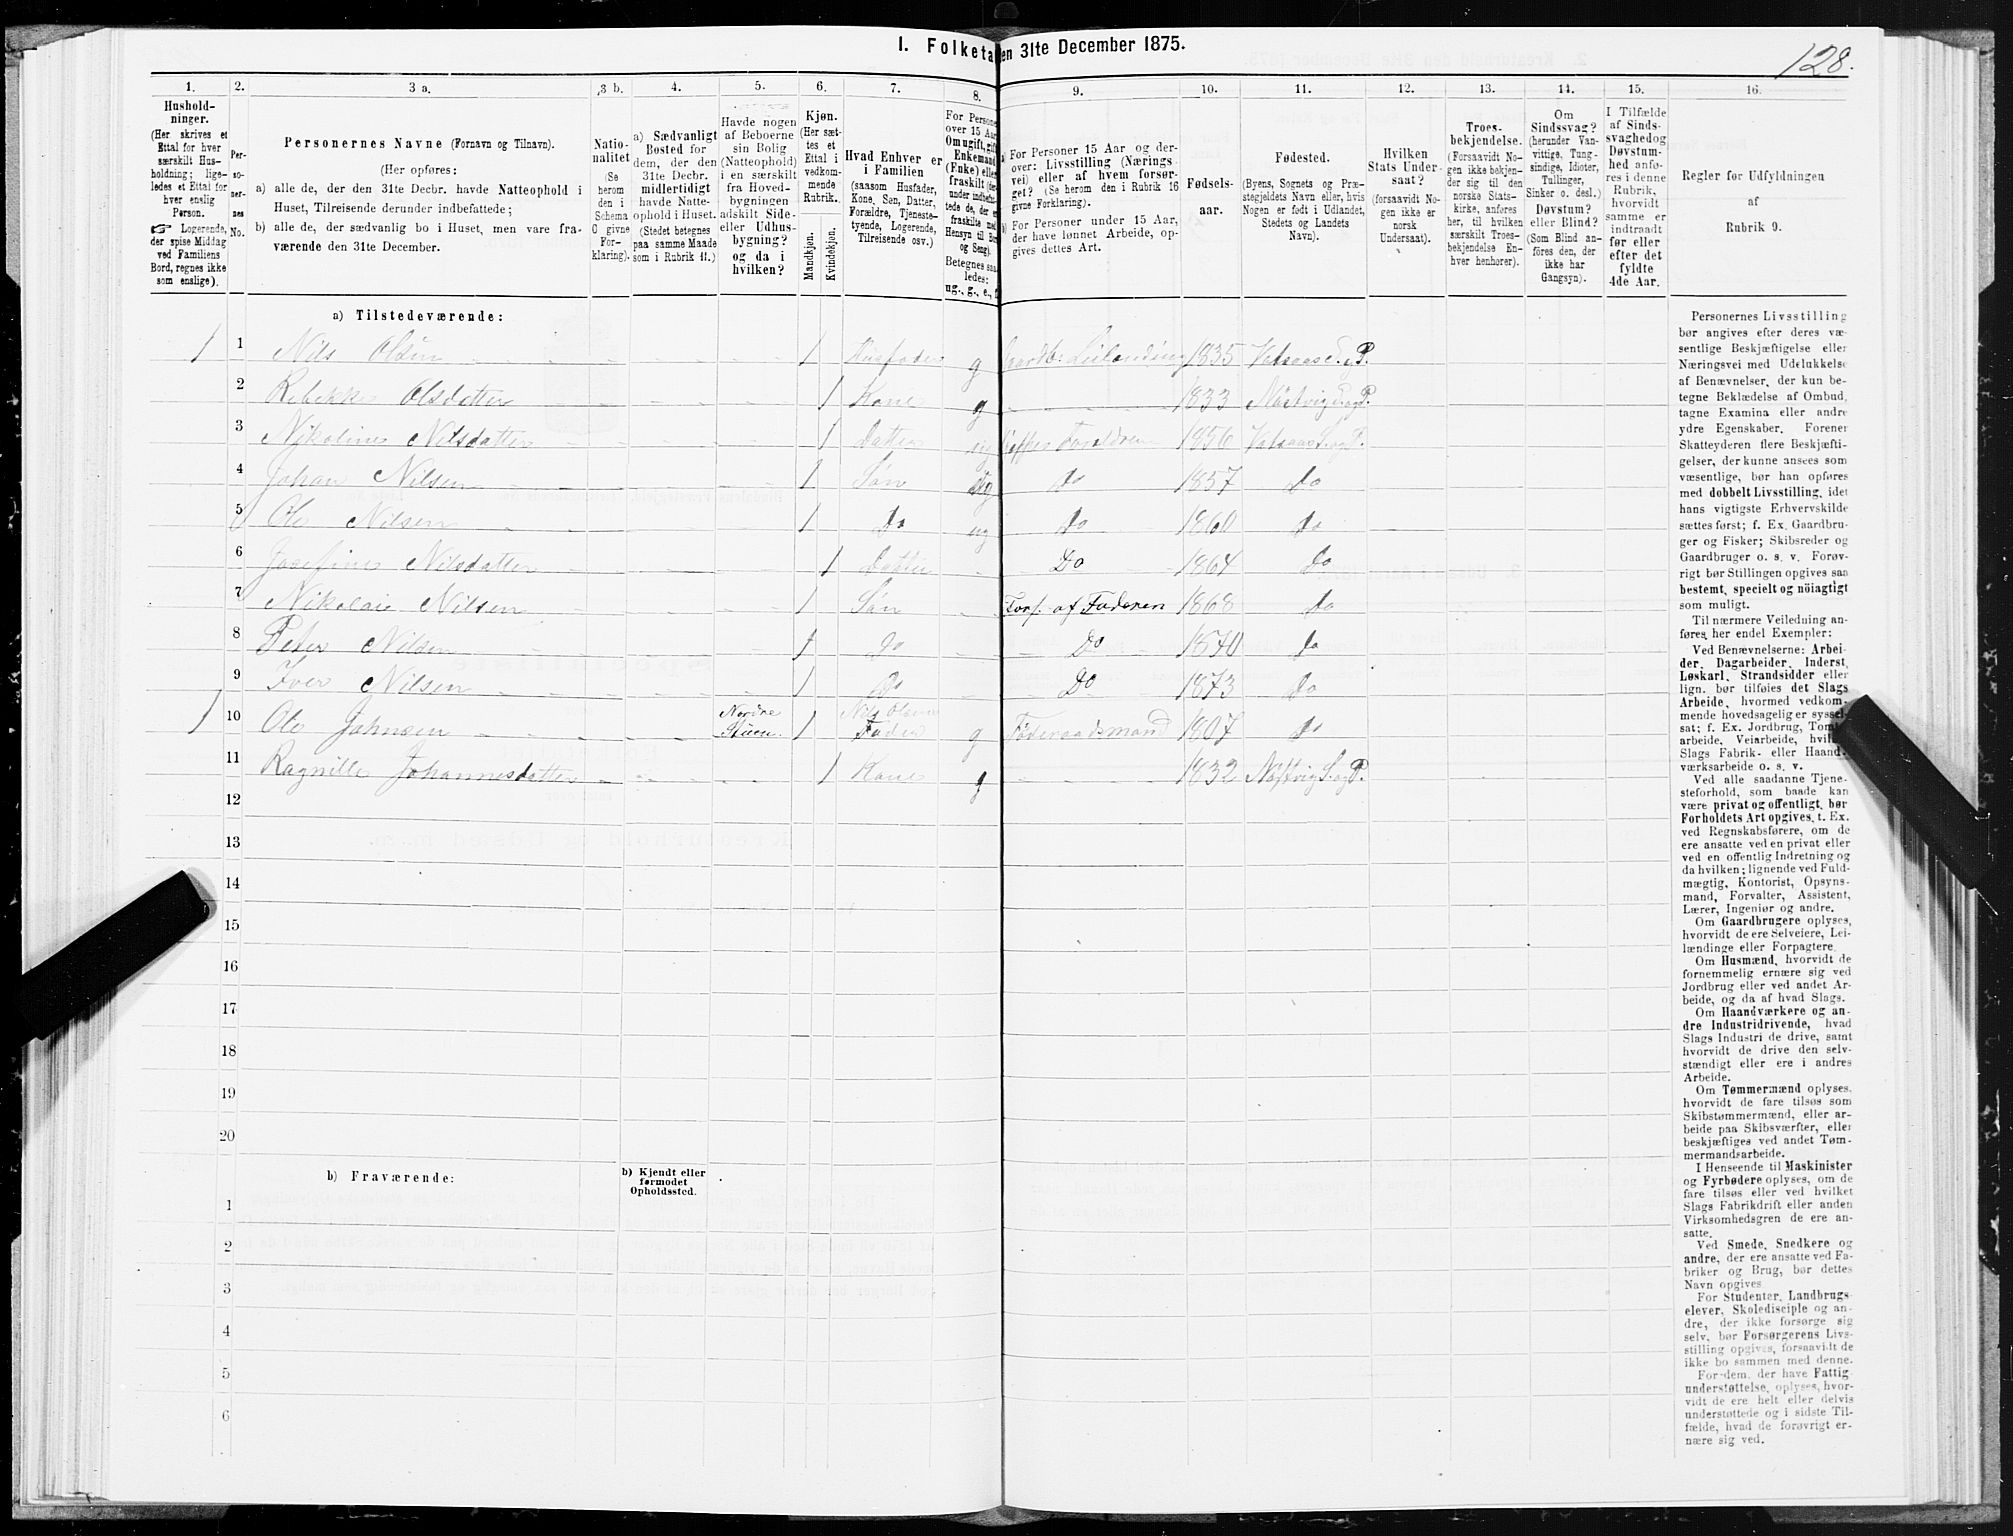 I. Folketa en 31te December 1875.
128.
1. 2. 3 a. 3 b. 4. 5. 6. 7. 8. 9. 10. 11. 12. 13. 14. 15. 16.
Hushold-
ninger.
(Her skrives et
Ettal for hver
særskilt Hus-
holdning; lige-
ledes et Ettal for
hver enslig
Person.
☞ Logerende,
der spise Middag
ved Familiens
Bord, regnes ikke
som enslige).
Per-
so-
ner-
nes
No.
Personernes Navne (Fornavn og Tilnavn).
(Her opføres:
a) alle de, der den 31te Decbr. havde Natteophold i
Huset, Tilreisende derunder indbefattede;
b) alle de, der sædvanlig bo i Huset, men vare fra-
værende den 31te December.
Natio-
nalitet
(Se
herom
den i
Schema
C givne
For-
klaring).
a) Sædvanligt
Bosted for
dem, der den
31te Decbr.
midlertidigt
havde Natte-
ophold i Huset.
(Stedet betegnes
paa samme Maade
som i Rubrik 11.)
Havde nogen
af Beboerne
sin Bolig
(Natteophold)
i en særskilt
fra Hoved-
bygningen
adskilt Side-
eller Udhus-
bygning?
og da i
hvilken?
Kjøn.
(Her sæt-
tes et
Ettal i
vedkom-
mende
Rubrik.
Mandkjøn.
Kvindekjøn.
Hvad Enhver er
i Familien
(saasom Husfader,
Kone, Søn, Datter,
Forældre, Tjeneste-
tyende, Logerende,
Tilreisende osv.)
For Persone
over 15 Aar
Om ugift, gift
Enkemand
(Enke) eller
fraskilt
Betegnes saa
ledes:
ug., g., e., f
a) For Personer 15 Aar og der-
over: Livsstilling (Nærings
vei) eller af hvem forsør-
get? (Se herom den i Rubrik 16
givne Forklaring).
b) For Personer under 15 Aar,
der have lønnet Arbeide, op-
gives dettes Art.
Fødsels-
aar.
Fødested.
(Byens, Sognets og Præ-
stegjeldets Navn eller, hvis
Nogen er født i Udlandet,
Stedets og Landets
Navn).
Hvilken
Stats Under-
saat?
(forsaavidt No-
gen ikke er
norsk
Undersaat).
Troes-
bekjendelse.
(Forsaavidt No-
gen ikke bekjen-
der sig til den
norske Stats-
kirke, anføres
her, til hvilken
særskilt Troes-
bekjendelse En-
hver henhører).
Om
Sindssvag?
(herunder Van-
vittige, Tung-
sindige, Idioter,
Tullinger,
Sinker o. desl.)
Døvstum?
eller Blind?
(Som Blind an-
føres den, der
ikke har
Gangsyn).
I Tilfælde
af Sinds-
svaghedog
Døvstum-
hed anfø-
res i denne
Rubrik,
hvorvidt
samme er
indtraadt
før eller
efter det
fyldte
4de Aar.
Regler for Udfyldningen
af
Rubrik 9.
a) Tilstedeværende:
1 1 Nils Olsen 1 Husfader g Gaardb: Leilending 1835 P.
2 Rebekke Olsdatter 1 Kone g 1833
3 Nikoline Nilsdatter 1 Datter ug Forældrene 1856
4 Johan Nilsen 1 Søn ug do 1857 do
5 Ole Nilsen 1 Do ug do 1860 do
6 Josefine Nilsdatter 1 Datter Do 1864 do
7 Nikolaie Nilsen 1 Søn Fors. af Faderen 1868 do
8 Peter Nilsen 1 Do Do 1870 do
9 Iver Nilsen 1 Do Do 1873 do
1 10 Ole Johnsen Nordre Stuen. 1 Nils Olsens Fader g Føderaadsmand 1807 do
11 Ragnille Johannesdatter 1 Kone g 1832
12
13
14
15
16
17
18
19
20
b) Fraværende:
b) Kjendt eller
formodet
Opholdssted.
1
2
3
4
5
6
Personernes Livsstilling
bør angives efter deres væ-
sentlige Beskjæftigelse eller
Næringsvei med Udelukkelse
af Benævnelser, der kun be-
tegne Beklædelse af Ombud,
tagne Examina eller andre
ydre Egenskaber. Forener
Skatteyderen flere Beskjæfti-
gelser, der kunne ansees som
væsentlige, bør han opføres
med dobbelt Livsstilling, idet
hans vigtigste Erhvervskilde
sættes først; f. Ex. Gaardbru-
ger og Fisker; Skibsreder og
Gaardbruger o. s. v. Forøv-
rigt bør Stillingen opgives saa
bestemt, specielt og nöiagtigt
som muligt.
Til nærmere Veiledning an-
føres her endel Exempler:
Ved Benævnelserne: Arbei-
der, Dagarbeider, Inderst,
Løskarl, Strandsidder eller
lign. bør tilføies det Slags
Arbeide, hvormed vedkom-
mende hovedsagelig er syssel
sat; f. Ex. Jordbrug, Tomt
arbeide, Veiarbeide, hvil
Slags Fabrik- eller Haand
værksarbeide o. s. v.
Ved alle saadanne Tjene-
steforhold, som baade kan
være privat og offentligt, bør
Forholdets Art opgives, t. Ex.
ved Regnskabsførere, om de
ere ansatte ved en privat eller
ved en offentlig Indretning og
da hvilken; lignende ved Fuld-
mægtig, Kontorist, Opsyns-
mand, Forvalter, Assistent,
Lærer, Ingeniør og andre.
Om Gaardbrugere oplyses,
hvorvidt de ere Selveiere, Lei-
lændinge eller Forpagtere.
Om Husmænd, hvorvidt de
fornemmelig ernære sig ved
Jordbrug eller ved andet Ar-
beide, og da af hvad Slags.
Om Haandværkere og an-
dre Industridrivende, hvad
Slags Industri de drive, samt
hvorvidt de drive den selv-
stændigt eller ere i andres
Arbeide.
Om Tømmermænd oplyses,
hvorvidt de fare tilsøs som
Skibstømmermænd, eller ar-
beide paa Skibsværfter, eller
beskjæftiges ved andet Tøm-
mermandsarbeide.
I Henseende til Maskinister
og Fyrbødere oplyses, om de
fare tilsøs eller ved hvilket
Slags Fabrikdrift eller anden
Virksomhedsgren de ere an-
satte.
Ved Smede, Snedkere og
andre, der ere ansatte ved Fa-
briker og Brug, bør dettes
Navn opgives
For Studenter, Landbrugs-
elever, Skoledisciple og an-
dre, der ikke forsørge sig
selv, bør Forsørgerens Livs-
stilling opgives, forsaavidt de
ikke bo sammen med denne.
For dem, der have Fattig-
understøttelse, oplyses, hvor-
vidt de ere helt eller delvis
understøttede og i sidste Til-
fælde, hvad de forøvrigt er-
nære sig ved.